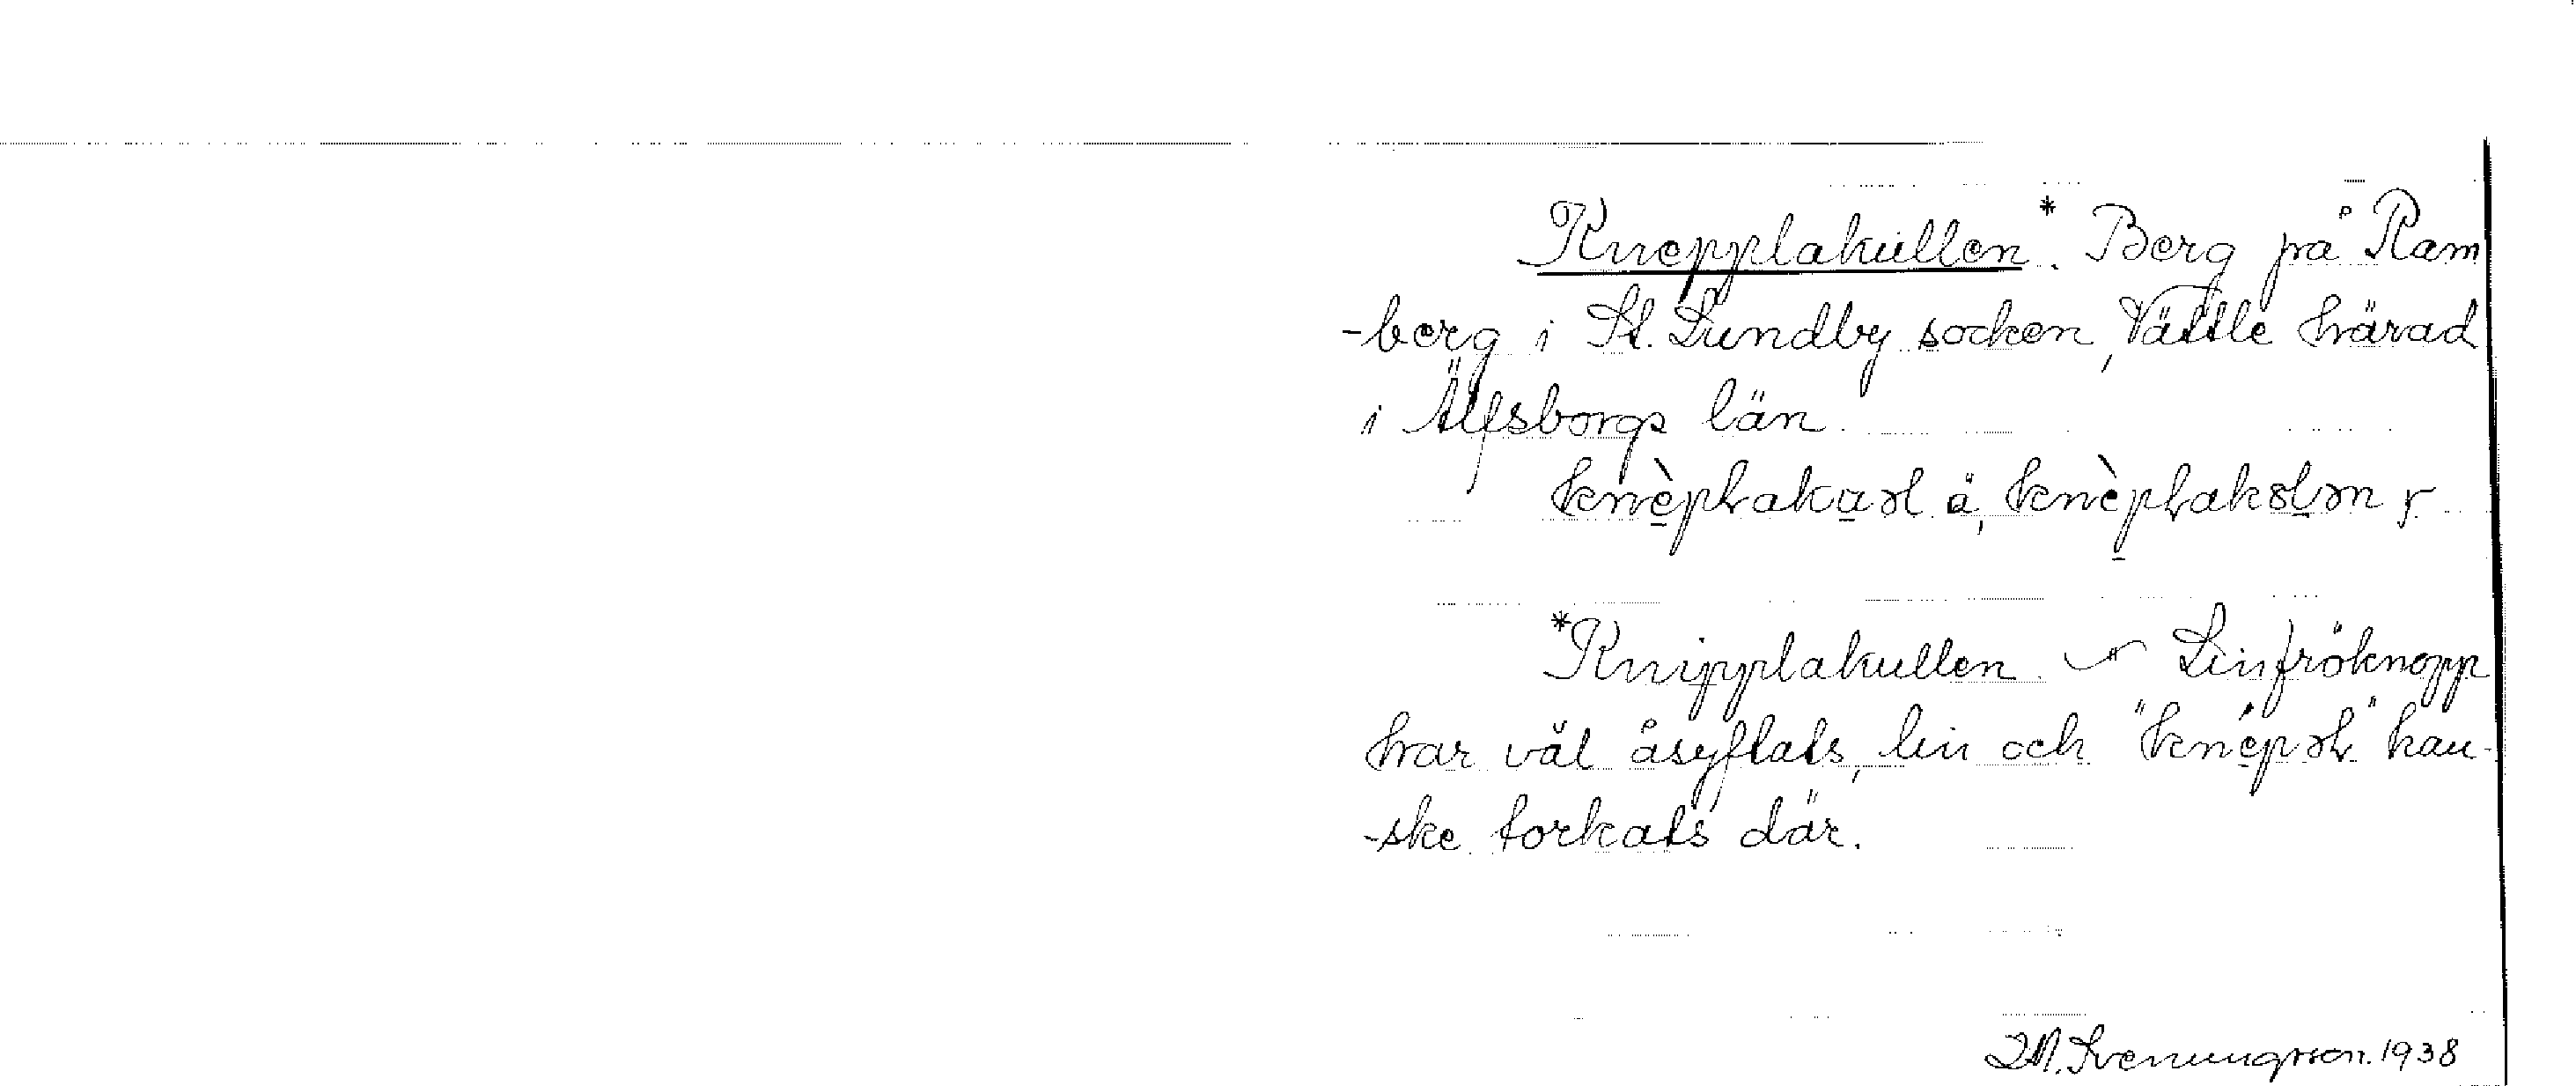 Knepplakullen*. Berg på Ram
-berg i St. Lundby socken, Vättle härad
i Älfsborgs län.
*Knipplakullen. Linfröknopp
har väl åsyftats, lin och kan-
-ske torkats där.
J.M. Svenungsson. 1938